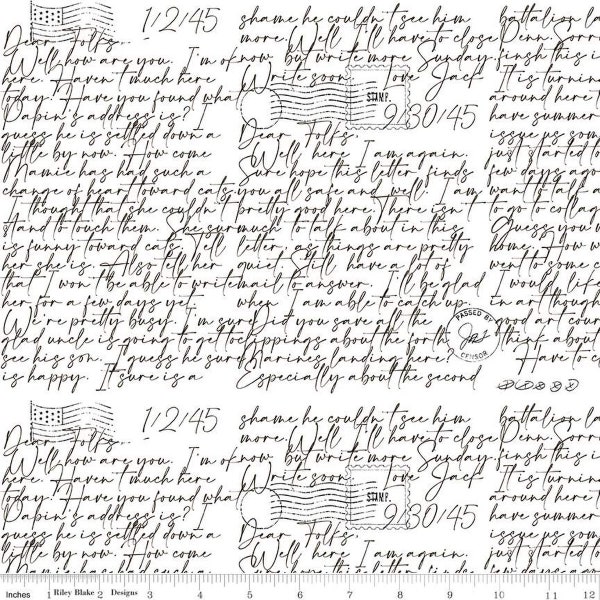 1/2/45
Dear Folks,
Well, how are you. I'm ok
here. Haven't much here
today. Have you found wha
Papin's address is? I
guess he is settled down a
little by now. How come
Mamie has had such a
change of heart toward cats,
I thought that she couldn't
stand to touch them. She sur
is funny toward cats. Tell
her she is. Also tell her
that I won't be able to write
her for a few days yet.
We're pretty busy. I'm sur
glad uncle is going to get to
see his son. I guess he sure
is happy. It sure is a
shame he couldn't see him
more. Well I'll have to close
now but write more Sunday.
Write soon. Love Jack
STAMP.
9/30/45
Dear Folks,
Well, here I am again.
Sure hope this letter finds
you all safe and well. I am
pretty good here. There isn't
much to talk about in this
letter, as things are pretty
quiet. Still have a lot of
mail to answer. I'll be glad
when I am able to catch up.
Did you save all the
clippings about the forth
Marines landing here?
Especially about the second
PASSED BY
CENSOR
battalion la
Penn. Sorr
finish this i
It is turnin
around here t
have summer
issue us som
just started to
few days ago
want to talk a
to go to collag
Guess you w
home. How w
went to some c
I would life
in art though
good art cour
think about
Have to c
1/2/45
Dear Folks,
Well, how are you. I'm ok
here. Haven't much here
today. Have you found wha
Papin's address is? I
guess he is settled down a
little by now. How come
Mamie has had such a
shame he couldn't see him
more. Well I'll have to close
now but write more Sunday.
Write soon. Love Jack
STAMP.
9/30/45
Dear Folks,
Well, here I am again.
Sure hope this letter finds
battalion la
Penn. Sorr
finish this i
It is turnin
around here t
have summer
issue us som
just started to
few days ago
Inches 1 Riley Blake 2 Designs 3 4 5 6 7 8 9 10 11 12